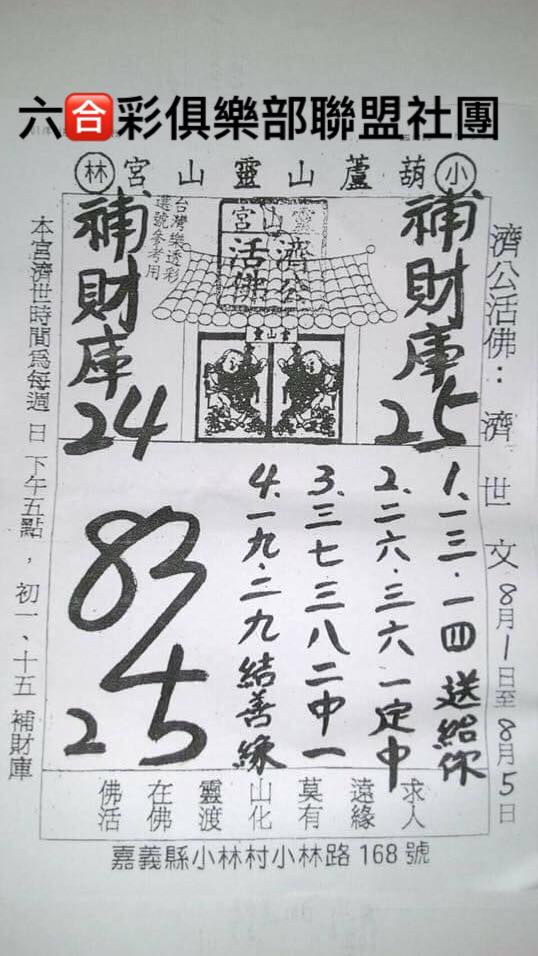 六合彩俱樂部聯盟社團
小葫蘆山靈山宮林
濟公活佛：濟世文8月1日至8月5日
補財庫25
靈山宮
濟公活佛
台灣樂透彩
選號參考用
靈山宮
補財庫24
1、一三・一四送給你
2、二六・三六一定中
3、三七・三八二中一
4、一九・二九結善緣
83
25
求人
遠緣
莫有
山化
靈渡
在佛
佛活
本宮濟世時間為每週日下午五點，初一、十五補財庫
嘉義縣小林村小林路168號